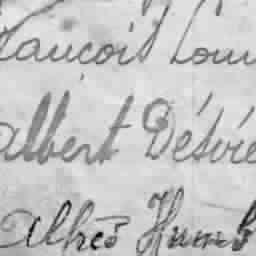 françois Lou
albert Désiré
Alfred Humb